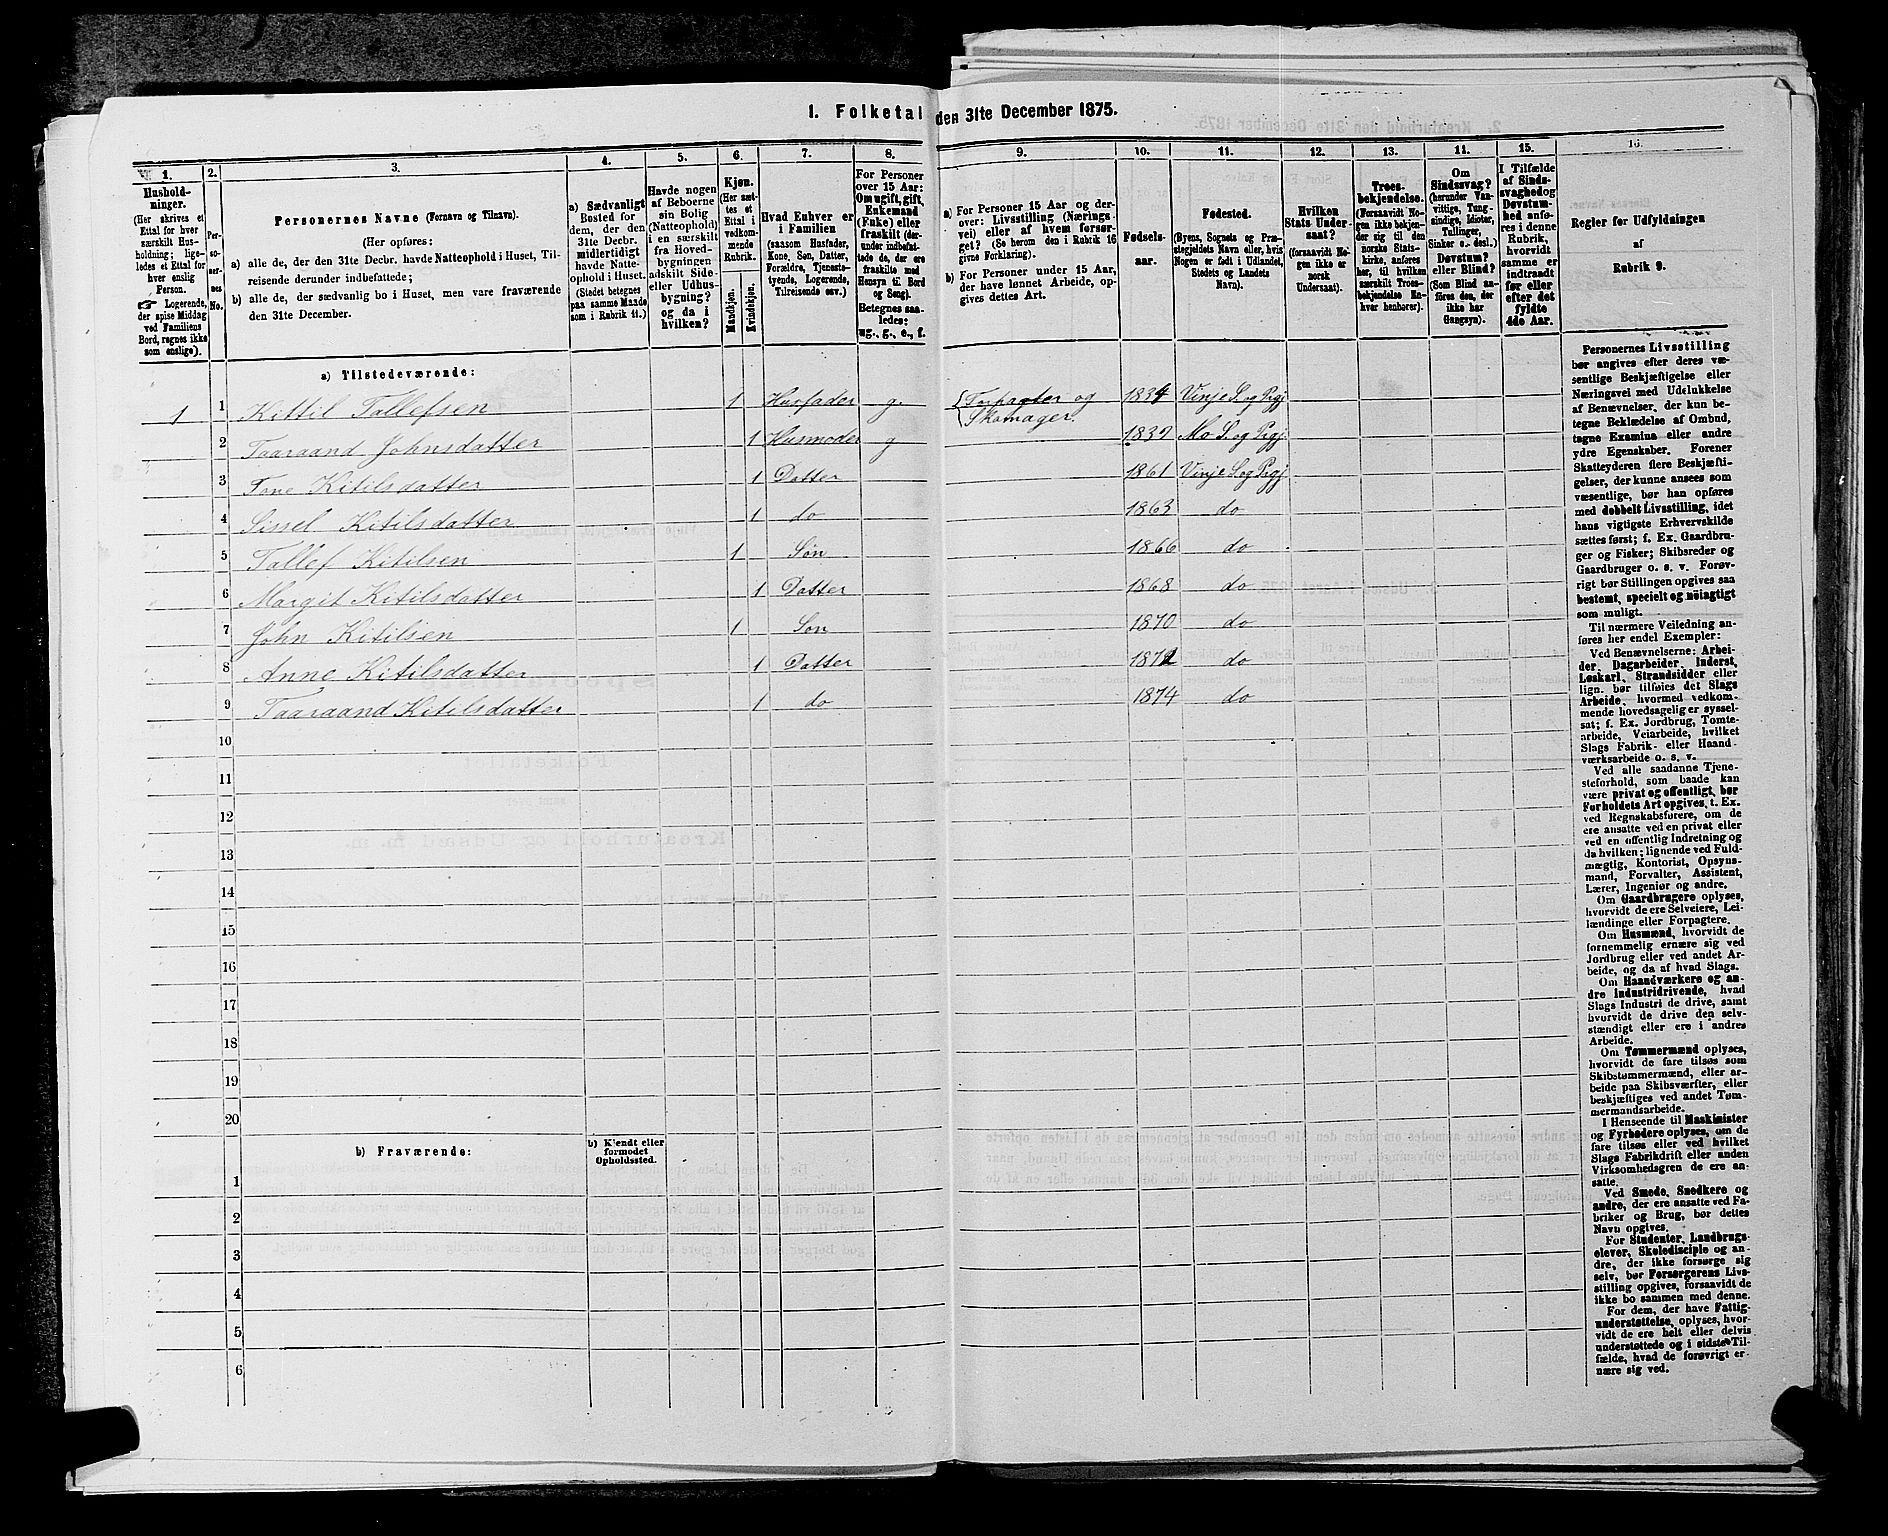 1. Folketal den 31te December 1875.
1.
2.
3.
4.
5.
6.
7.
8.
9.
10.
11.
12.
13.
14.
15.
16.
Hushold-
ninger.
(Her skrives et
Ettal for hver
særskilt Hus-
holdning; lige-
ledes et Ettal for
hver enslig
Person.
☞ Logerende,
der spise Middag
ved Familiens
Bord, regnes ikke
som enslige).
Per-
so-
ner-
nes
No.
Personernes Navne (Fornavn og Tilnavn).
(Her opføres:
a) alle de, der den 31te Decbr. havde Natteophold i Huset, Til-
reisende derunder indbefattede;
b) alle de, der sædvanlig bo i Huset, men vare fraværende
den 31te December.
a) Sædvanligt
Bosted for
dem, der den
31te Decbr.
midlertidigt
havde Natte-
ophold i Huset.
(Stedet betegnes
paa samme Maade
som i Rubrik 11.)
Havde nogen
af Beboerne
sin Bolig
(Natteophold)
i en særskilt
fra Hoved-
bygningen
adskilt Side-
eller Udhus-
bygning?
og da i
hvilken?
Kjøn.
(Her sæt-
tes et
Ettal i
vedkom-
mende
Rubrik.
Mandkjøn.
Kvindekjøn.
Hvad Enhver er
i Familien
(saasom Husfader,
Kone, Søn, Datter,
Forældre, Tjeneste-
tyende, Logerende,
Tilreisende osv.)
For Personer
over 15 Aar:
Om ugift, gift,
Enkemand
(Enke) eller
fraskilt (der-
under indbefat-
tede de, der ere
fraskilte med
Hensyn til Bord
og Seng).
Betegnes saa-
ledes:
ug., g., e., f.
a) For Personer 15 Aar og der-
over: Livsstilling (Nærings-
vei) eller af hvem forsør-
get? (Se herom den i Rubrik 16
givne Forklaring).
b) For Personer under 15 Aar,
der have lønnet Arbeide, op-
gives dettes Art.
Fødsels-
aar.
Fødested.
(Byens, Sognets og Præ-
stegjeldets Navn eller, hvis
Nogen er født i Udlandet,
Stedets og Landets
Navn).
Hvilken
Stats Under-
saat?
(forsaavidt No-
gen ikke er
norsk
Undersaat).
Troes-
bekjendelse.
(Forsaavidt No-
gen ikke bekjen-
der sig til den
norske Stats-
kirke, anføres
her, til hvilken
særskilt Troes-
bekjendelse En-
hver henhører).
Om
Sindssvag?
(herunder Van-
vittige, Tung-
sindige, Idioter,
Tullinger,
Sinker o. desl.)
Døvstum?
eller Blind?
(Som Blind an-
føres den, der
ikke har
Gangsyn).
I Tilfælde
af Sinds-
svaghed og
Døvstum-
hed anfø-
res i denne
Rubrik,
hvorvidt
samme er
indtraadt
før eller
efter det
fyldte
4de Aar.
Regler for Udfyldningen
af
Rubrik 9.
a) Tilstedeværende:
1 1 Kittil Tallefsen 1 Husfader g. Forpagter og Skomager. 1834 Vinje S. og Prgj
2 Taaraand Johnsdatter 1 Husmoder g Mo S. og Prgj.
3 Tone Kitilsdatter 1 Datter 1861 Vinje S. og Prgj
4 Sissel Kitilsdatter 1 do 1863 do
5 Tallef Kitilsen 1 Søn 1866 do
6 Margit Kitilsdatter 1 Datter 1868 do
7 John Kitilsen 1 Søn 1870 do
8 Anne Kitilsdatter 1 Datter do
9 Taaraand Kitilsdatter 1 do 1874 do
10
11
12
13
14
15
16
17
18
19
20
b) Fraværende:
b) Kjendt eller
formodet
Opholdssted.
1
2
3
4
5
6
Personernes Livsstilling
bør angives efter deres væ-
sentlige Beskjæftigelse eller
Næringsvei med Udelukkelse
af Benævnelser, der kun be-
tegne Beklædelse af Ombud,
tagne Examina eller andre
ydre Egenskaber. Forener
Skatteyderen flere Beskjæfti-
gelser, der kunne ansees som
væsentlige, bør han opføres
med dobbelt Livsstilling, idet
hans vigtigste Erhvervskilde
sættes først; f. Ex. Gaardbru-
ger og Fisker; Skibsreder og
Gaardbruger o. s. v. Forøv-
rigt bør Stillingen opgives saa
bestemt, specielt og nøiagtigt
som muligt.
Til nærmere Veiledning an-
føres her endel Exempler:
Ved Benævnelserne: Arbei-
der, Dagarbeider, Inderst,
Løskarl, Strandsidder eller
lign. bør tilføies det Slags
Arbeide, hvormed vedkom-
mende hovedsagelig er syssel-
sat; f. Ex. Jordbrug, Tomte-
arbeide, Veiarbeide, hvilket
Slags Fabrik- eller Haand-
værksarbeide o. s. v.
Ved alle saadanne Tjene-
steforhold, som baade kan
være privat og offentligt, bør
Forholdets Art opgives, t. Ex.
ved Regnskabsførere, om de
ere ansatte ved en privat eller
ved en offentlig Indretning og
da hvilken; lignende ved Fuld-
mægtig, Kontorist, Opsyns-
mand, Forvalter, Assistent,
Lærer, Ingeniør og andre.
Om Gaardbrugere oplyses,
hvorvidt de ere Selveiere, Lei-
lændinge eller Forpagtere.
Om Husmænd, hvorvidt de
fornemmelig ernære sig ved
Jordbrug eller ved andet Ar-
beide, og da af hvad Slags.
Om Haandværkere og an-
dre industridrivende, hvad
Slags Industri de drive, samt
hvorvidt de drive den selv-
stændigt eller ere i andres
Arbeide.
Om Tømmermænd oplyses,
hvorvidt de fare tilsøs som
Skibstømmermænd, eller ar-
beide paa Skibsværfter, eller
beskjæftiges ved andet Tøm-
mermandsarbeide.
I Henseende til Maskinister
og Fyrbødere oplyses, om de
fare tilsøs eller ved hvilket
Slags Fabrikdrift eller anden
Virksomhedsgren de ere an-
satte.
Ved Smede, Snedkere og
andre, der ere ansatte ved Fa-
briker og Brug, bør dettes
Navn opgives.
For Studenter, Landbrugs-
elever, Skoledisciple og an-
dre, der ikke forsørge sig
selv, bør Forsørgerens Livs-
stilling opgives, forsaavidt de
ikke bo sammen med denne.
For dem, der have Fattig-
understøttelse, oplyses, hvor-
vidt de ere helt eller delvis
understøttede og i sidste Til-
fælde, hvad de forøvrigt er-
nære sig ved.